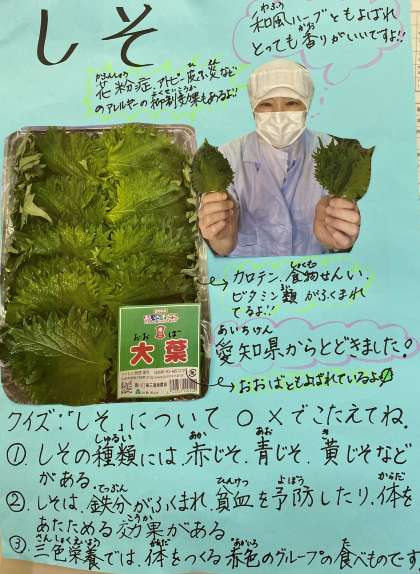 しそ
和風ハーブともよばれ
とっても香りがいいですよ!!
花粉症、アトピー皮ふ炎など
のアレルギーの抑制効果もあるよ!!
カロテン、食物せんい、
ビタミン類がふくまれ
てるよ!!
おおば
大葉
愛知県からとどきました。
おおばともよばれているよ
クイズ:「しそ」について ○×でこたえてね。
①.しその種類には、赤じそ、青じそ、黄じそなど
がある。
②.しそは、鉄分がふくまれ、貧血を予防したり、体を
あたためる効果がある。
③.三色栄養では、体をつくる赤色のグループの食べものです